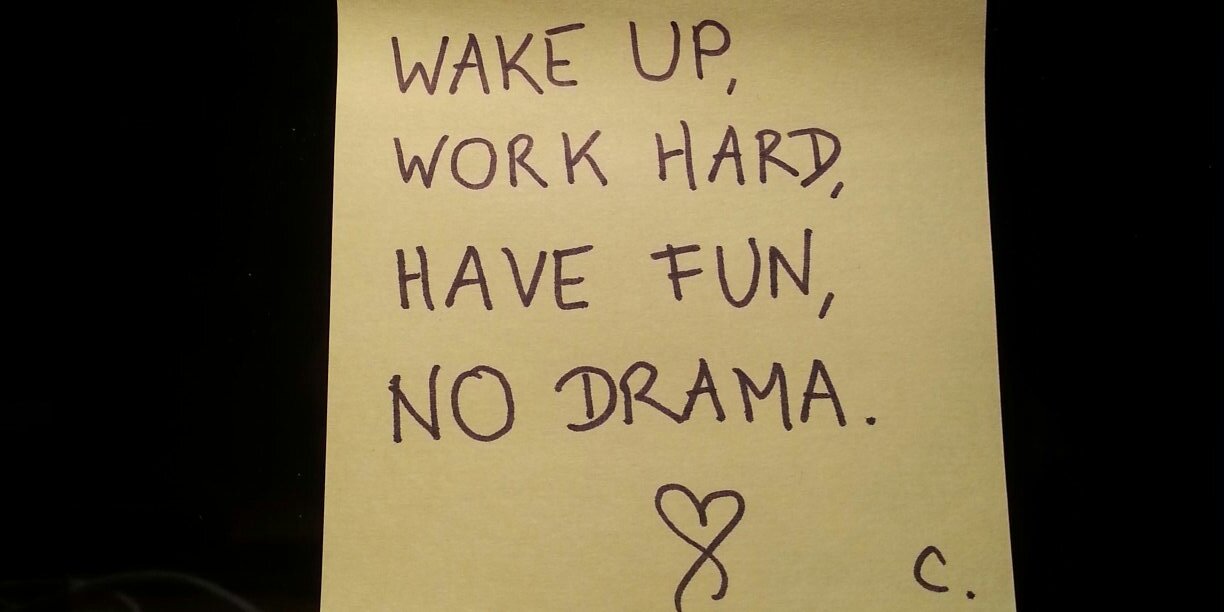 WAKE UP,
WORK HARD,
HAVE FUN,
NO DRAMA.
C.